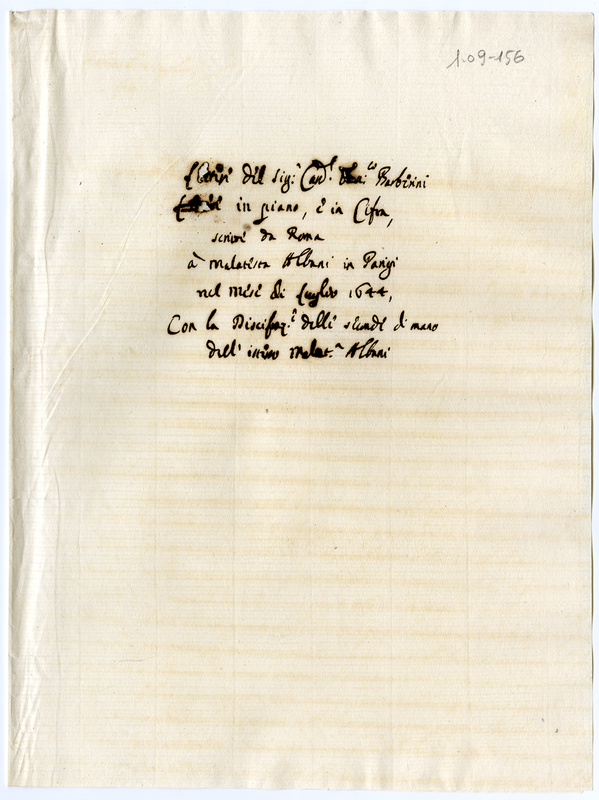 1.09-156
Lettere del Sig.r Card.l Barberini
in piano, e in Cifra,
scritte da Roma
à Malatesta Albani in Parigi
nel Mese di Luglio 1644,
Con la Discifraz.e delle seconde di mano
dell' istesso Malat.a Albani